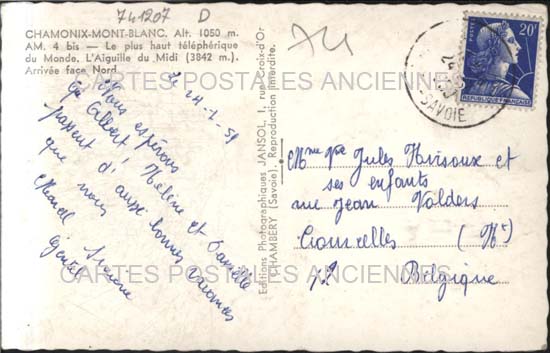 741207 D
CHAMONIX-MONT-BLANC. Alt. 1050 m.
AM. 4 bis — Le plus haut téléphérique
du Monde. L'Aiguille du Midi (3842 m.)
Arrivée face Nord.
Nous espérons
que Albert, Hélène et
passent d'aussi bonnes vacances
que nous
Marcel Simone
Editions Photographiques JANSOL, 1, rue Croix-d'Or
CHAMBERY (Savoie). Reproduction interdite.
POSTES
20F
REPUBLIQUE FRANÇAISE
SAVOIE
Mme Vve Jules
et
ses enfants
rue Jean Volders
Courcelles (Ht)
Belgique
CARTES POSTALES ANCIENNES
CARTES POSTALES ANCIENNES